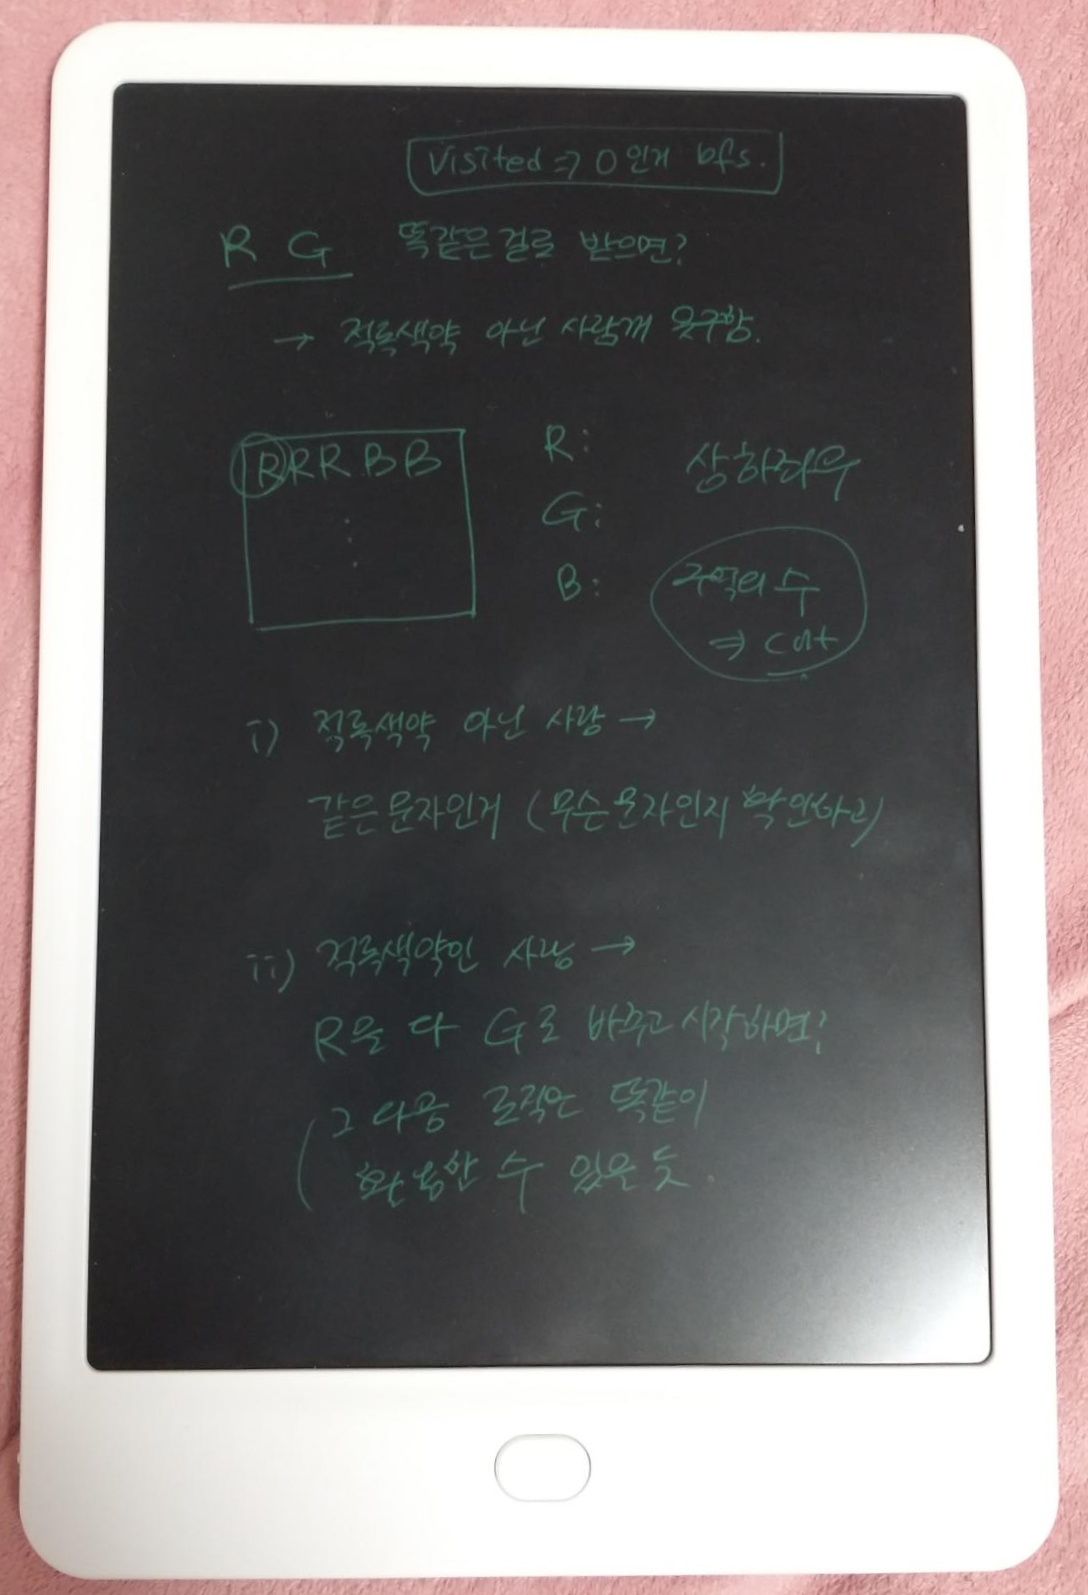 Visited => 0인거 bfs.
R G 똑같은걸로 받으면?
→ 적록색약 아닌 사람꺼 못구함.
RRRBB
R:
G:
B:
상하좌우
구역의 수
⇒ cnt
i) 적록색약 아닌 사람 →
같은문자인거 (무슨문자인지 확인하고)
ii) 적록색약인 사람 →
R을 다 G로 바꾸고 시작하면?
(그 다음 로직은 똑같이
활용할 수 있을 듯.